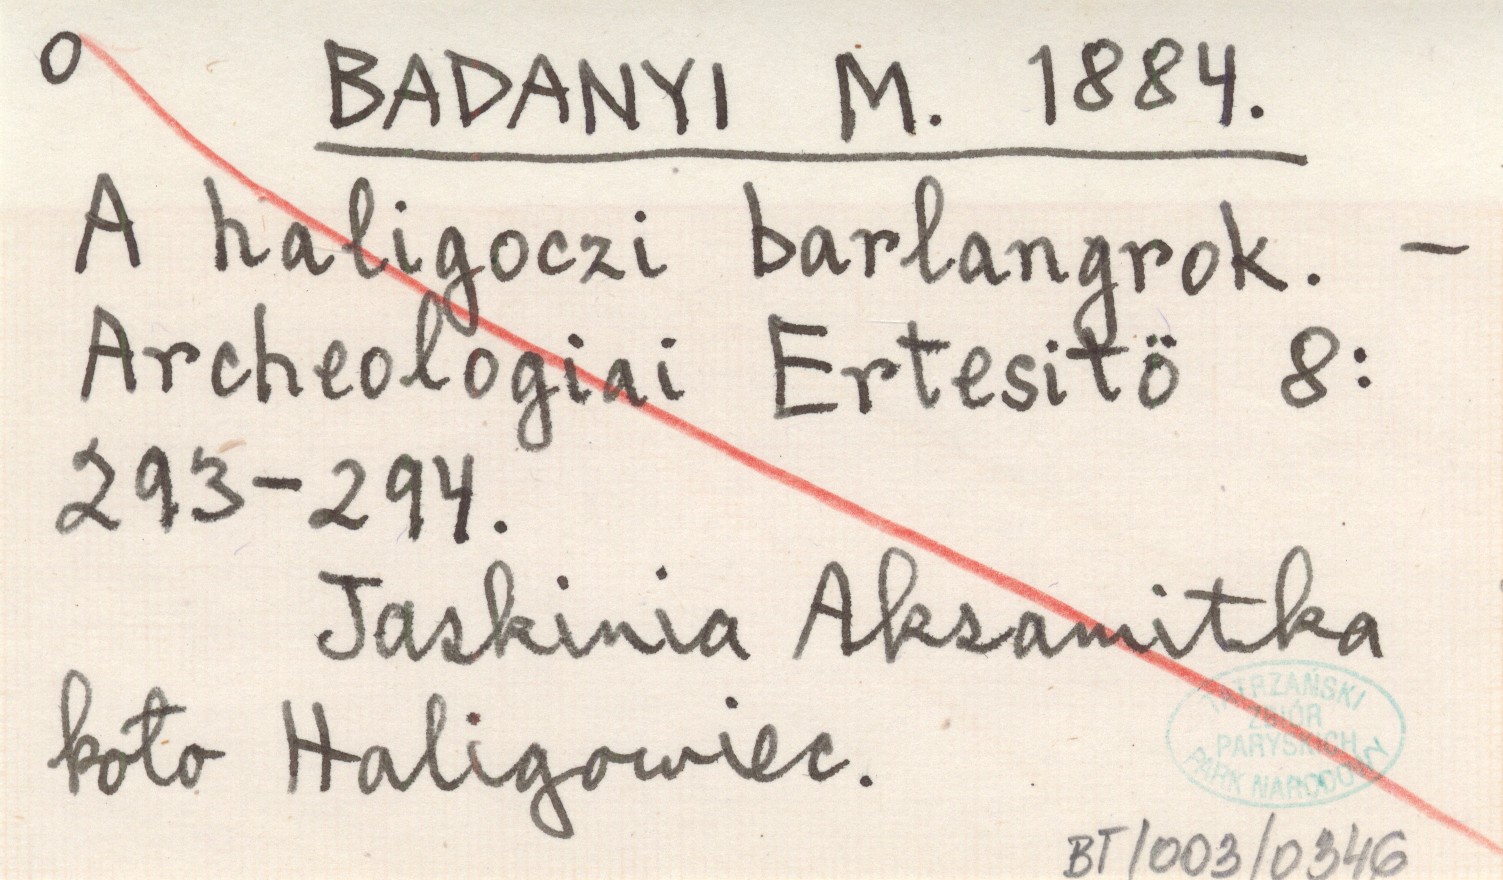 O BADANYI M. 1884.
A haligoczi barlangrok. –
Archeologiai Ertesitö 8:
293–294.
Jaskinia Aksamitka
koło Haligowiec.
TATRZAŃSKI
ZBIÓR
PARYSKICH
PARK NARODOWY
BT/003/0346